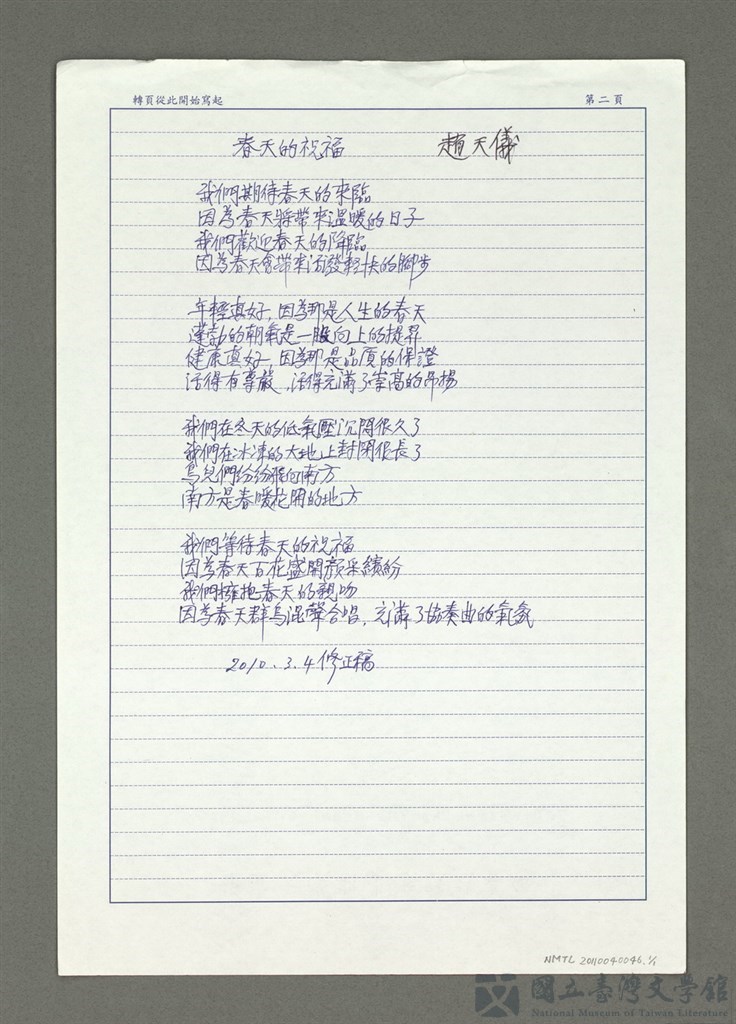 轉頁從此開始寫起
第二頁
春天的祝福 趙天儀
我們期待春天的來臨
因為春天將帶來溫暖的日子
我們歡迎春天的降臨
因為春天會帶來活發輕快的腳步
年輕真好,因為那是人生的春天
蓬勃的朝氣是一股向上的提昇
健康真好,因為那是品質的保證
活得有尊嚴,活得充滿了崇高的昂揚
我們在冬天的低氣壓沉悶很久了
我們在冰凍的大地上封閉很長了
鳥兒們紛紛飛向南方
南方是春暖花開的地方
我們等待春天的祝福
因為春天百花盛開顏采繽紛
我們擁抱春天的親吻
因為春天群鳥混聲合唱,充滿了協奏曲的氣氛
2010.3.4修正稿
NMTL 20110040046.1/1
國立臺灣文學館
National Museum of Taiwan Literature